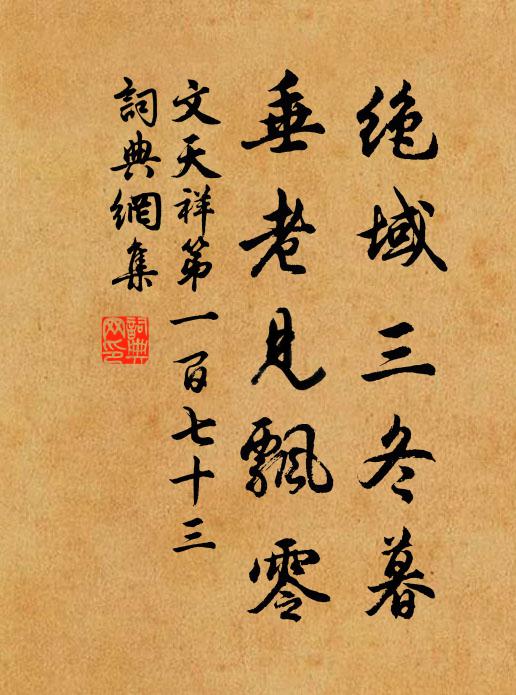 絶域三冬暮
垂老見飄零
文天祥第一百七十三
詞典網集
詞典
网印